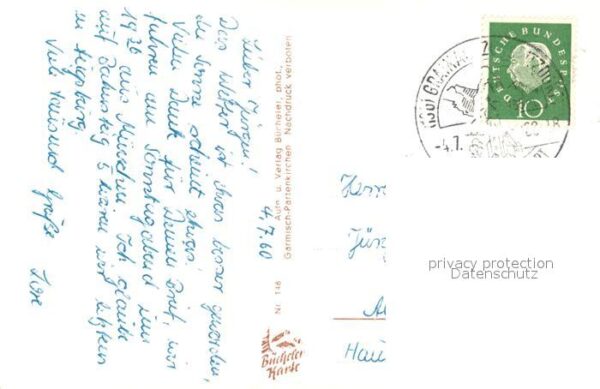 4.7.60
Lieber Jürgen!
Das Wetter ist etwas besser geworden,
die Sonne scheint etwas.
Vielen Dank für Deinen Brief, wir
fahren am Sonntagabend um
19²⁶ aus München. Ich glaube
auf Bahnsteig 5 kommen wir
in Augsburg
Viele tausend Grüße
Aufn. u. Verlag Bücheler, phot.,
Garmisch-Partenkirchen Nachdruck verboten
Nr. 146
Bücheler
Karte
DEUTSCHE BUNDESPOST
10
(13b) GRAINAU
-4.7.
Herrn
Jürg
Hau
privacy protection
Datenschutz